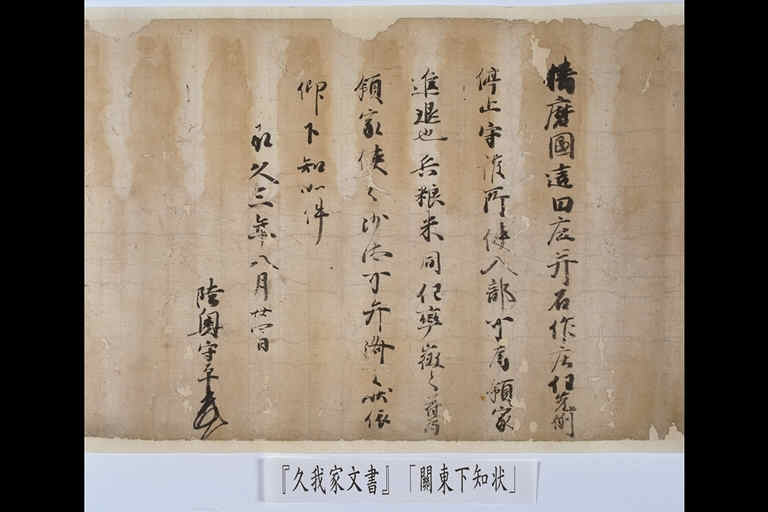 播磨國這田庄并石作庄任先例
停止守護所使入部可爲領家
進退也兵粮米同任率徴之
領家使之沙汰可弁濟之状依
仰下知如件
承久三年八月廿四日
陸奥守平
『久我家文書』「關東下知状」